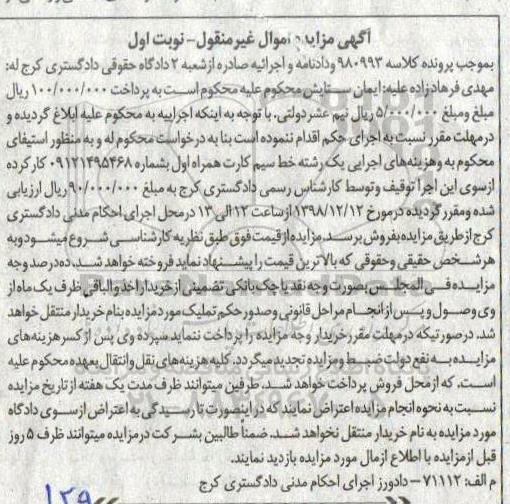 آگهی مزایده اموال غیر منقول - نوبت اول
بموجب پرونده کلاسه ۹۸۰۹۹۲ ودادنامه و اجرائیه صادره از شعبه ۲ دادگاه حقوقی دادگستری کرج له:
مهدی فرهادزاده علیه: ایمان ستایش محکوم علیه محکوم است به پرداخت ۱۰۰/۰۰۰/۰۰۰ ریال
مبلغ ومبلغ ۵/۰۰۰/۰۰۰ ریال نیم عشر دولتی. با توجه به اینکه اجراییه به محکوم علیه ابلاغ گردیده و
در مهلت مقرر نسبت به اجرای حکم اقدام ننموده است بنا به درخواست محکوم له و به منظور استیفای
محکوم به وهزینه‌های اجرایی یک رشته خط سیم کارت همراه اول بشماره ۰۹۱۲۱۴۹۵۴۶۸ کار کرده
ازسوی این اجرا توقیف وتوسط کارشناس رسمی دادگستری کرج به مبلغ ۹۰/۰۰۰/۰۰۰ ریال ارزیابی
شده ومقرر گردیده در مورخ ۱۳۹۸/۱۲/۱۲ ازساعت ۱۲ الی ۱۳ در محل اجرای احکام مدنی دادگستری
کرج ازطریق مزایده بفروش برسد. مزایده از قیمت فوق طبق نظریه کارشناسی شروع میشود وبه
هر شخص حقیقی وحقوقی که بالاترین قیمت را پیشنهاد نماید فروخته خواهد شد. ده درصد وجه
مزایده فی المجلس بصورت وجه نقد یا چک بانکی تضمینی از خریدار اخذ والباقی ظرف یک ماه از
وی وصول و پس از انجام مراحل قانونی وصدور حکم تملیک مورد مزایده بنام خریدار منتقل خواهد
شد. درصورتیکه در مهلت مقرر خریدار وجه مزایده را پرداخت ننماید سپرده وی پس از کسر هزینه‌های
مزایده به نفع دولت ضبط و مزایده تجدید میگردد. کلیه هزینه‌های نقل وانتقال بعهده محکوم علیه
است. که از محل فروش پرداخت خواهد شد. طرفین میتوانند ظرف مدت یک هفته از تاریخ مزایده
نسبت به نحوه انجام مزایده اعتراض نمایند که در اینصورت تا رسیدگی به اعتراض ازسوی دادگاه
مورد مزایده به نام خریدار منتقل نخواهد شد. ضمنا طالبین بشرکت در مزایده میتوانند ظرف ۵ روز
قبل از مزایده با اطلاع از مال مورد مزایده بازدید نمایند.
م الف: ۷۱۱۱۲ – دادورز اجرای احکام مدنی دادگستری کرج
۱۲۹